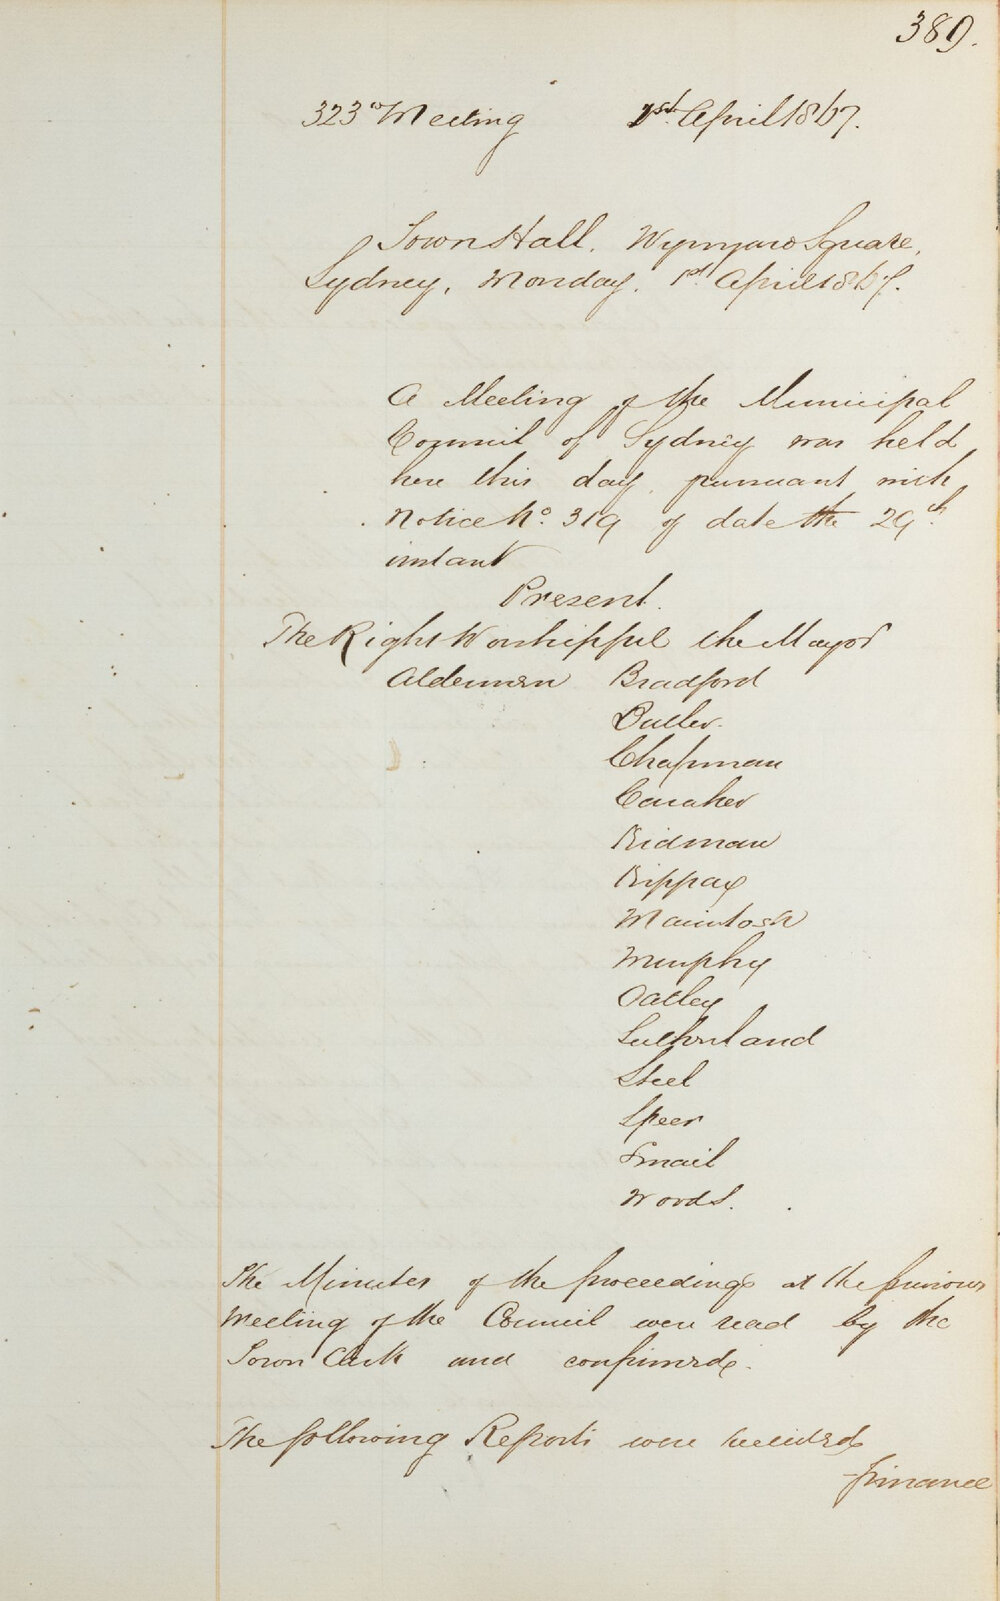 389.
323rd Meeting 1st April 1867.
Town Hall, Wynyard Square,
Sydney, Monday, 1st April 1867.
A Meeting of the Municipal
Council of Sydney was held
here this day, pursuant with
Notice No. 319 of date the 29th
instant
Present.
The Right Worshipful the Mayor
Aldermen Bradford
Butler.
Chapman
Caraher
Kidman
Kippax
Macintosh
Murphy
Oatley
Sutherland
Steel
Speer
Smail
Woods.
The Minutes of the proceedings at the previous
Meeting of the Council were read by the
Town Clerk and confirmed.
The following Reports were received
Finance